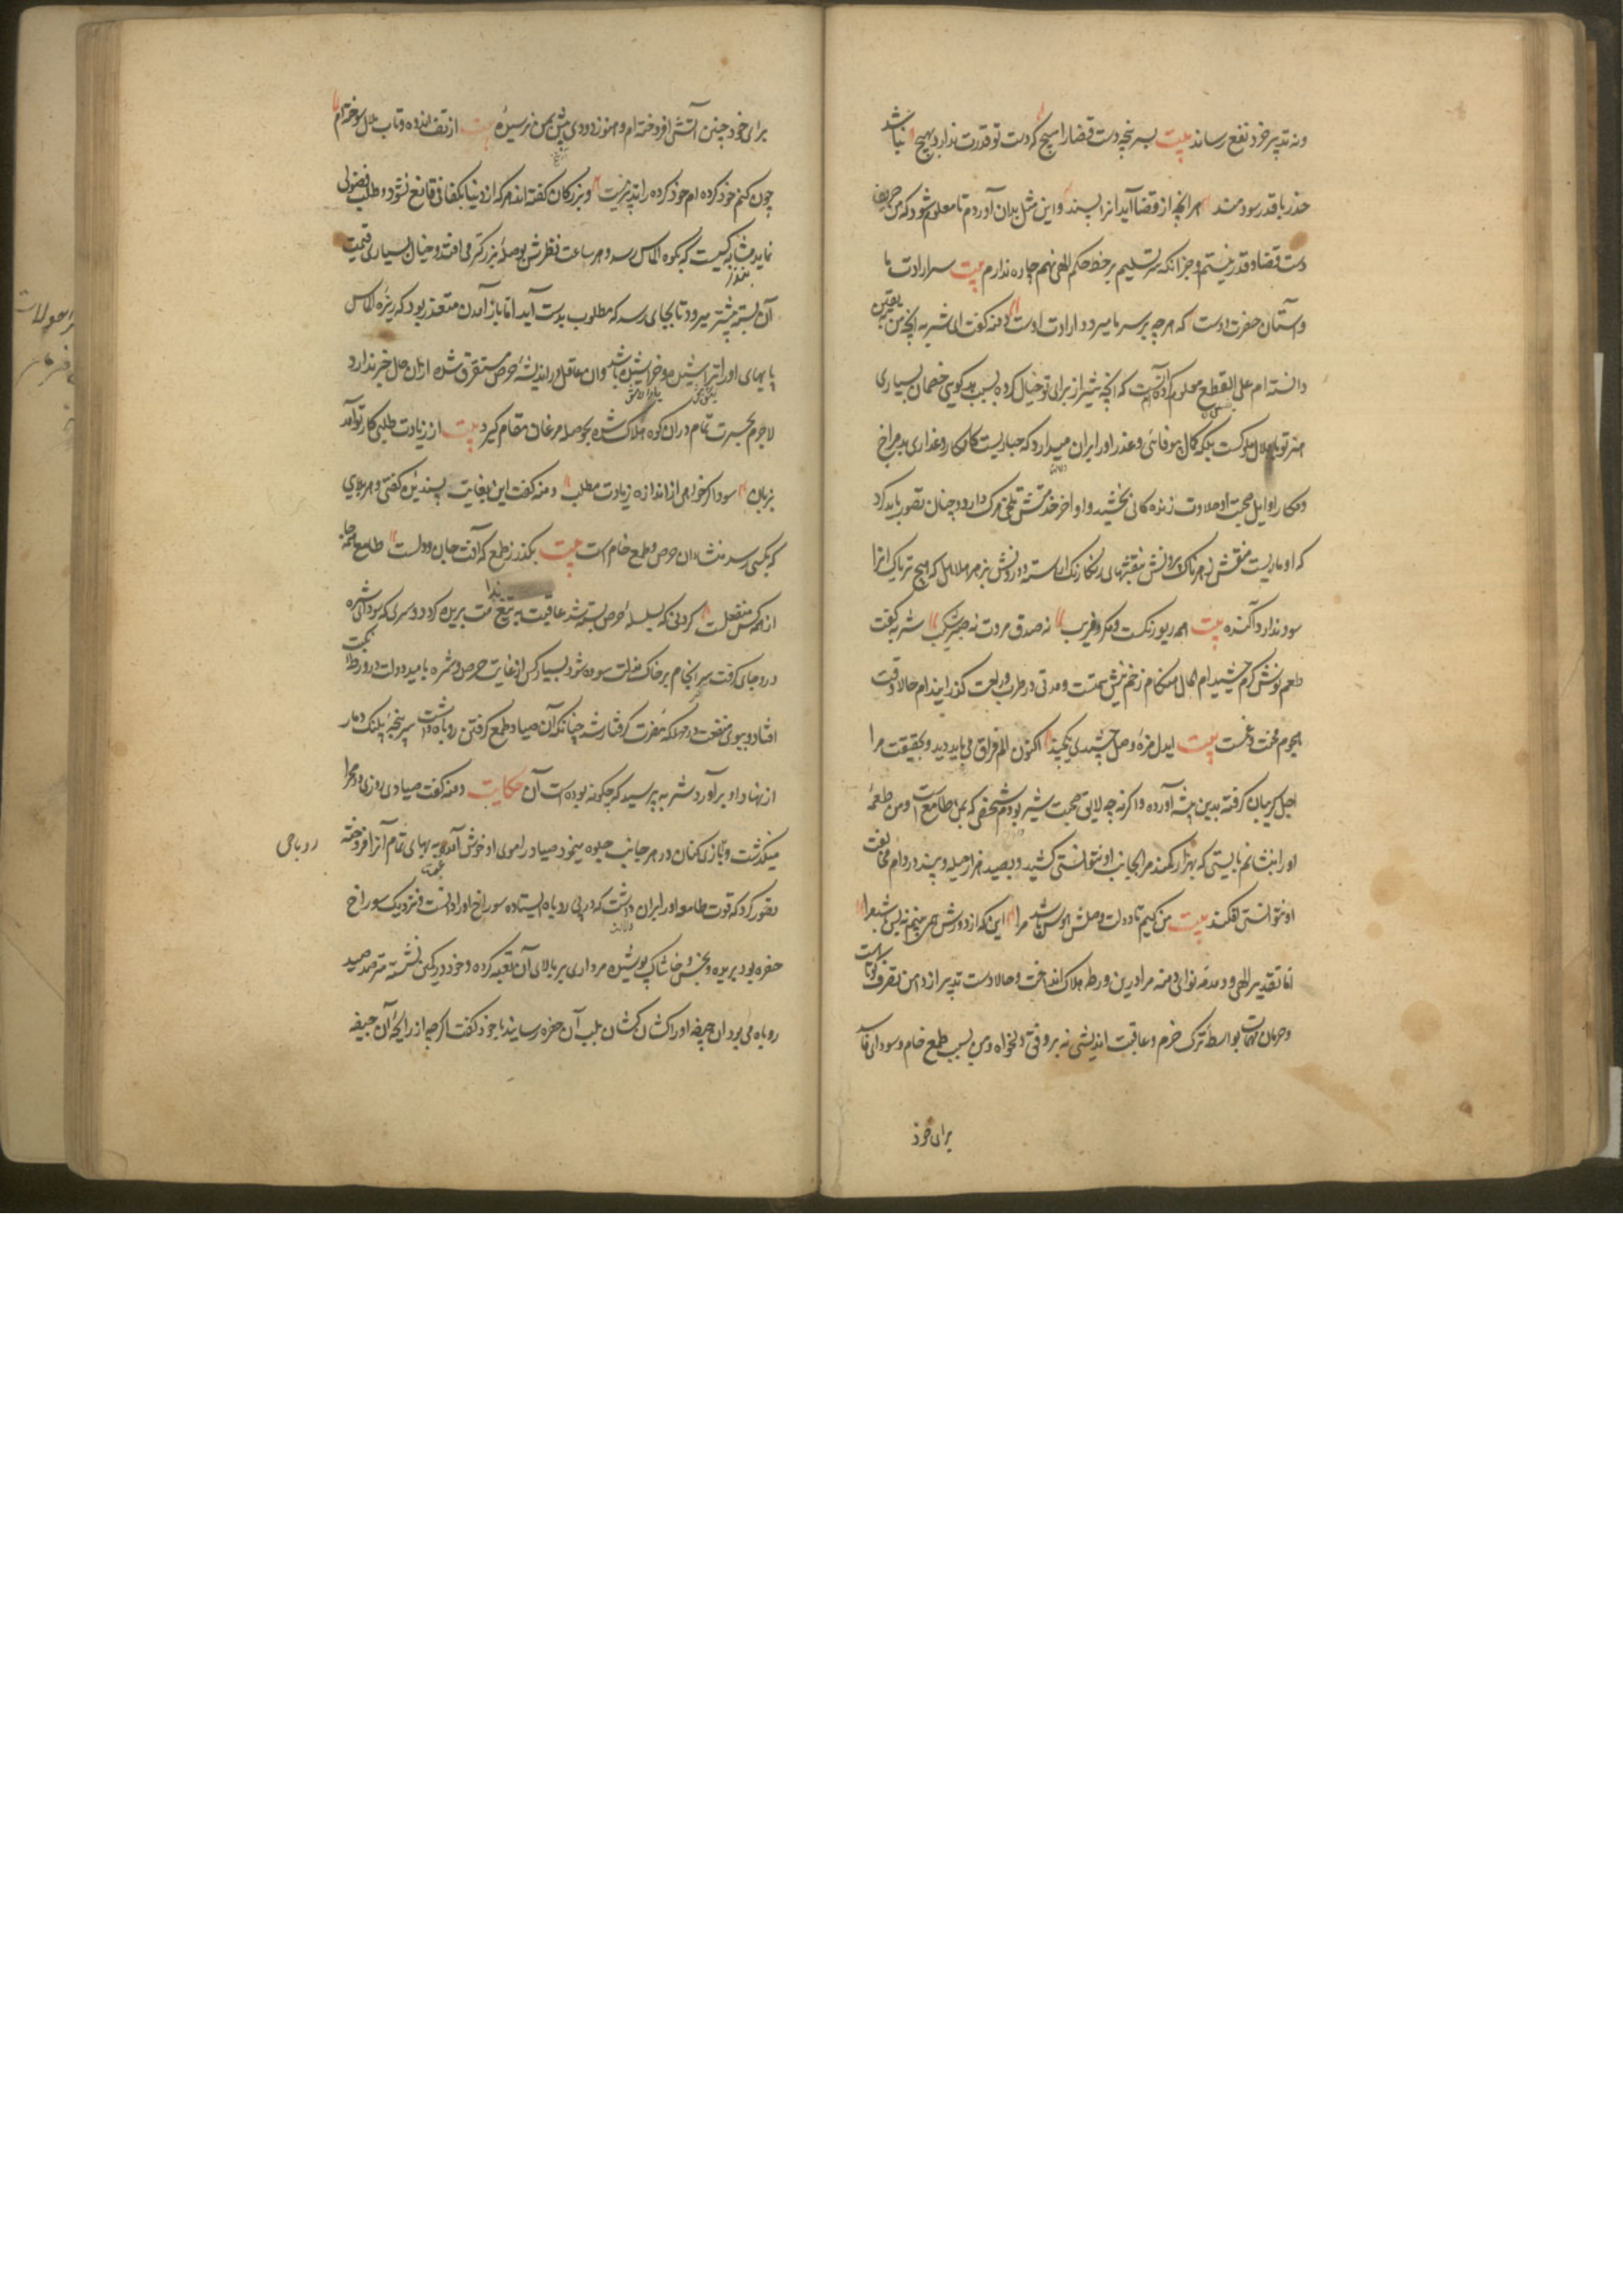 ونه تدبیر خرد نفع رساند بیت بسر پنجه دست قضا را مپیچ که دست تو قدرت ندارد بهیچ نباشد
حذر با قدر سودمند هر انچه از قضا آید انرا پسند و این مثل بدان آوردم تا معلوم شود که من حریف
دست قضا و قدر نیستم و جز انکه سر تسلیم بر خط حکم الهی نهم چاره ندارم بیت سر ارادت ما
و آستان حضرت دوست که هر چه بر سر ما میرود ارادت اوست دمنه گفت ای شتربه انچه من بیقین
دانسته ام علی القطع معلوم کرده آنست که انچه شیر از برای تو خیال کرده بسبب بدگویی خصمان بسیاری
هنر تو با ملال ملوکست بلکه کمال بیوفائی و غدر او را بران میدارد که جباریست کامکار و غداری بد مزاج
و مکار اوایل صحبت او حلاوت زندگانی بخشید و اواخر خدمتش تلخی مرگ دارد و چنان تصور باید کرد
که او ماریست منقش زهرناک برونش بنقشهای رنگارنگ آراسته و درونش بزهر هلاهل که هیچ تریاک انرا
سود ندارد آکنده بیت همه ریو رنگست و مکر و فریب نه صدق مروت نه صبر و شکیب شتربه گفت
طعم نوش کرم چشیده ام حال هنگام زخم نیش ستمست و مدتی در طرب و راحت گذرانیده ام حالا وقت
هجوم محنت و غمست بیت ایدل مزهٔ وصل چشیدی یکچند اکنون الم فراق می باید دید و بحقیقت مرا
اجل گریبان گرفته بدین بیشه آورده و اگر نه چه لایق صحبت شیر بودم شخصی که بمن طامع است و من طعمهٔ
او را نشانم بایستی که بهزار کمند مرا بجانب او نتوانستی کشید و بصد هزار حیله و بند در دام مخالفت
او نتوانستی افکند بیت من کیم تا دولت وصلش هوس باشد مرا این که از دورش همی بینم نه بس باشد مرا
اما تقدیر الهی و دمدمهٔ تو ای دمنه مرا درین ورطه هلاک انداخت و حالا دست تدبیر از دامن تصرف کوتاه است
و حرمان مهمات بواسطه ترک حزم و عاقبت اندیشی نه بر وفق دلخواه و من بسبب طمع خام و سودای فاسد
برای خود
برای خود چنین آتشی افروخته ام و هنوز دودی بیش بمن نرسیده بیت از تف اندوه و تاب ملال سوخته ام
چون کنم خود کرده ام خود کرده را تدبیر نیست و بزرگان گفته اند هر که از دنیا بکفافی قانع نشود و طلب فضولی
نماید مثابه کسیست که بکوه الماس رسد و هر ساعت نظرش بوصله بزرگتر می افتد و خیال بسیاری قیمت
آن بسته پیشتر میرود تا بجای رسد که مطلوب بدست آید اما باز آمدن متعذر بود که ریزه الماس
پایهای او را تراشیده و خراشیده باشد وان غافل در اندیشهٔ حرص مستغرق شده از ان حال خبر ندارد
لاجرم بحسرت تمام در ان کوه هلاک شده بحوصله مرغان مقام گیرد بیت از زیادت طلبی کار تو آمد
بزیان سود اگر خواهی از اندازه زیادت مطلب دمنه گفت این بغایت پسندیده گفتی و هر بلای
که بکسی رسد منشا ان حرص و طمع خام است بیت بگذر ز طمع که آفت جان و دلست طامع همه جا
از همه کس منفعلست گردنی که بسلسلهٔ حرص بسته شد عاقبت به تیغ ندامت بریده گردد و سری که سودای شره
درو جای گرفت سرانجام بر خاک مذلت سوده شود بسیار کس از غایت حرص و شره بامید دولت در ورطهٔ نکبت
افتاد و ببوی منفعت در مهلکه مضرت گرفتار شد چنانکه آن صیاد طمع گرفتن روباه داشت سر پنجه پلنگ دمار
از نهاد او برآورد شتربه پرسید که چگونه بوده است آن حکایت دمنه گفت صیادی روزی در صحرا
میگذشت روباهی
و بازی کنان در هر جانب جلوه مینمود صیاد را موی او خوش آمده به بهای تمام آنرا فروخته
تصور کرد که قوت طامعه او را بران داشت که در پی روباه ایستاده سوراخ او را دانست و نزدیک سوراخ
حفره بود بریده و بخس و خاشاک پوشیده مرداری بر بالای آن تعبیه کرده و خود در کمین نشسته مترصد صید
روباه می بود ان جیفه او را کشان کشان بلب آن حفره رسانید با خود گفت اگر چه از رایحهٔ آن جیفه